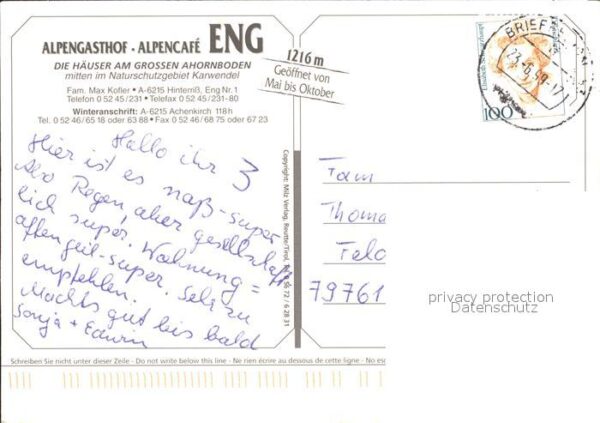 ALPENGASTHOF · ALPENCAFÉ ENG
DIE HÄUSER AM GROSSEN AHORNBODEN
mitten im Naturschutzgebiet Karwendel
Fam. Max Kofler • A-6215 Hinterriß, Eng Nr. 1
Telefon 0 52 45 / 231 • Telefax 0 52 45 / 231-80
Winteranschrift: A-6215 Achenkirch 118h
Tel. 0 52 46/65 18 oder 63 88 • Fax 0 52 46/68 75 oder 67 23
1216 m
Geöffnet von
Mai bis Oktober
Hallo ihr 3
Hier ist es naß-super
Also Regen, aber gesellschaft
lich super. Wohnung =
affengeil-super. Sehr zu
empfehlen.
Machts gut bis bald
Sonja + Edwin
Copyright: Milz Verlag, Reutte/Tirol, Tel. 0 56 72 / 6 28 31
BRIEFZE
23.-6.99-17
100
Fam
Thoma
Feld
79761
privacy protection
Datenschutz
Schreiben Sie nicht unter dieser Zeile - Do not write below this line - Ne rien écrire au dessous de cette ligne - No es